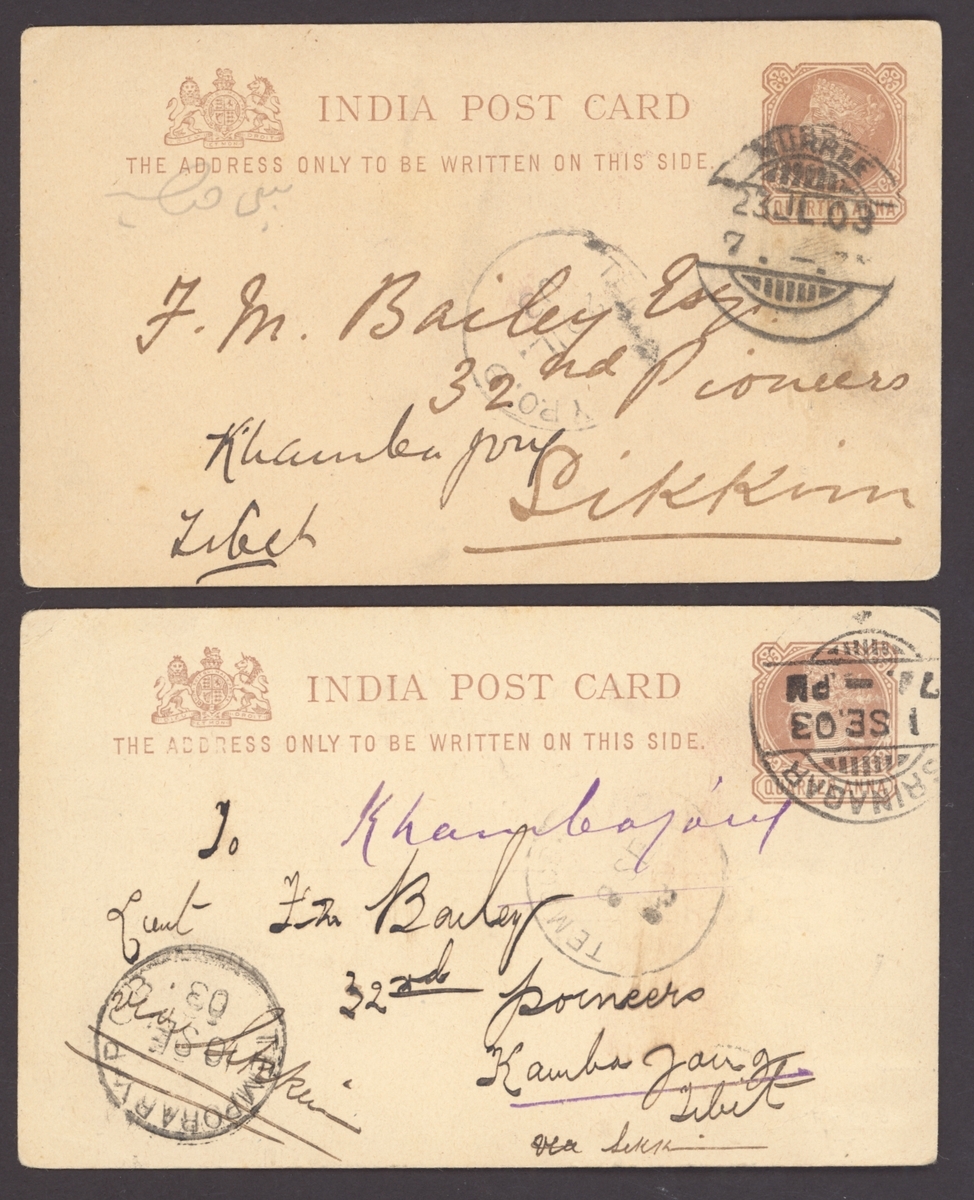 INDIA POST CARD
THE ADDRESS ONLY TO BE WRITTEN ON THIS SIDE.
QUARTER ANNA
MURREE
23 JL.03
7
F. M. Bailey Esq.
32nd Pioneers
Khamba Jong
Sikkim
Tibet
INDIA POST CARD
THE ADDRESS ONLY TO BE WRITTEN ON THIS SIDE.
QUARTER ANNA
SRINAGAR
1 SE.03
7 — PM
To Khambajong
Lieut F M Bailey
32nd poineers
Kamba Jong
Tibet
via Sikkim
TEMPORARY P.O.
18 SE
03
TEM
SE